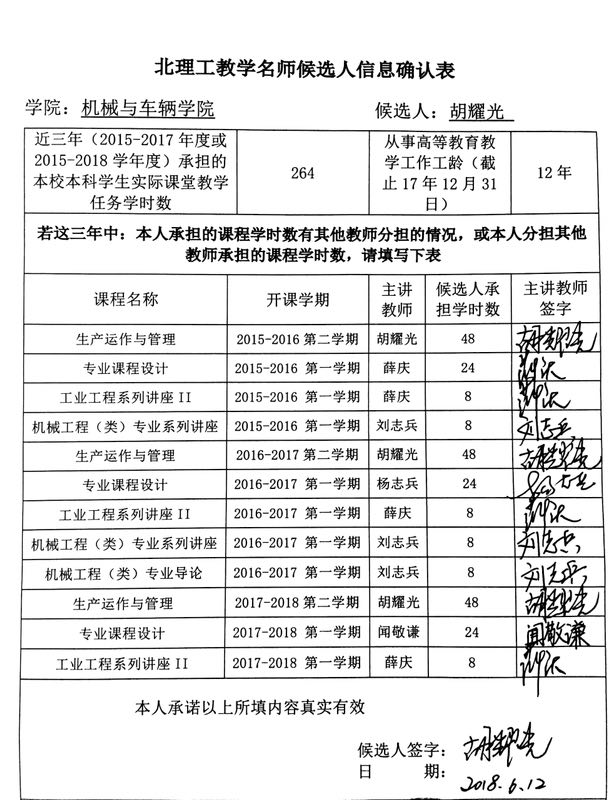 北理工教学名师候选人信息确认表
学院：机械与车辆学院 候选人：胡耀光
近三年（2015-2017 年度或
2015-2018 学年度）承担的
本校本科学生实际课堂教学
任务学时数
264
从事高等教育教
学工作工龄（截
止 17 年 12 月 31
日）
12 年
若这三年中：本人承担的课程学时数有其他教师分担的情况，或本人分担其他
教师承担的课程学时数，请填写下表
课程名称 开课学期 主讲教师 候选人承担学时数 主讲教师签字
生产运作与管理 2015-2016 第二学期 胡耀光 48 胡耀光
专业课程设计 2015-2016 第一学期 薛庆 24 薛庆
工业工程系列讲座 II 2015-2016 第一学期 薛庆 8 薛庆
机械工程（类）专业系列讲座 2015-2016 第一学期 刘志兵 8 刘志兵
生产运作与管理 2016-2017 第二学期 胡耀光 48 胡耀光
专业课程设计 2016-2017 第一学期 杨志兵 24 杨志兵
工业工程系列讲座 II 2016-2017 第一学期 薛庆 8 薛庆
机械工程（类）专业系列讲座 2016-2017 第一学期 刘志兵 8 刘志兵
机械工程（类）专业导论 2016-2017 第一学期 刘志兵 8 刘志兵
生产运作与管理 2017-2018 第二学期 胡耀光 48 胡耀光
专业课程设计 2017-2018 第一学期 闻敬谦 24 闻敬谦
工业工程系列讲座 II 2017-2018 第一学期 薛庆 8 薛庆
本人承诺以上所填内容真实有效
候选人签字：胡耀光
日 期：2018.6.12